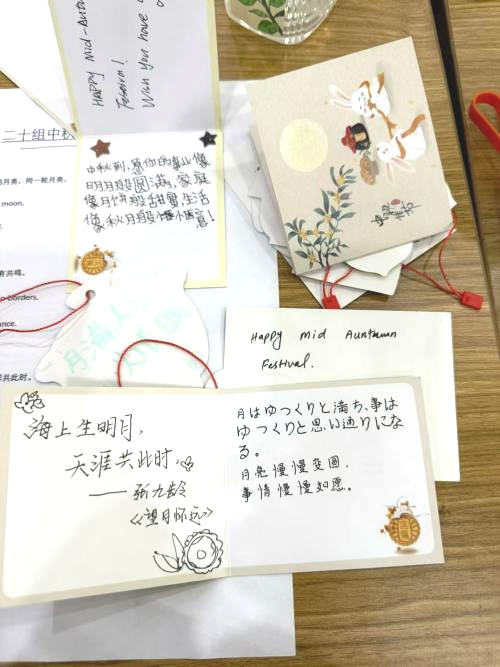 HAPPY Mid-Autu
Festival!
Wish you have
二十组中秋
月亮，同一轮月亮。
moon.
有共鸣。
borders.
ance.
共此时。
中秋到，愿你的事业像
明月般圆满，家庭
像月饼般甜蜜，生活
像秋月般
月满人
中秋佳节
Happy Mid Auntumn
Festival.
海上生明月，
天涯共此时。
——张九龄
《望月怀远》
月はゆっくりと満ち、事は
ゆっくりと思い通りにな
る。
月亮慢慢变圆，
事情慢慢如愿。